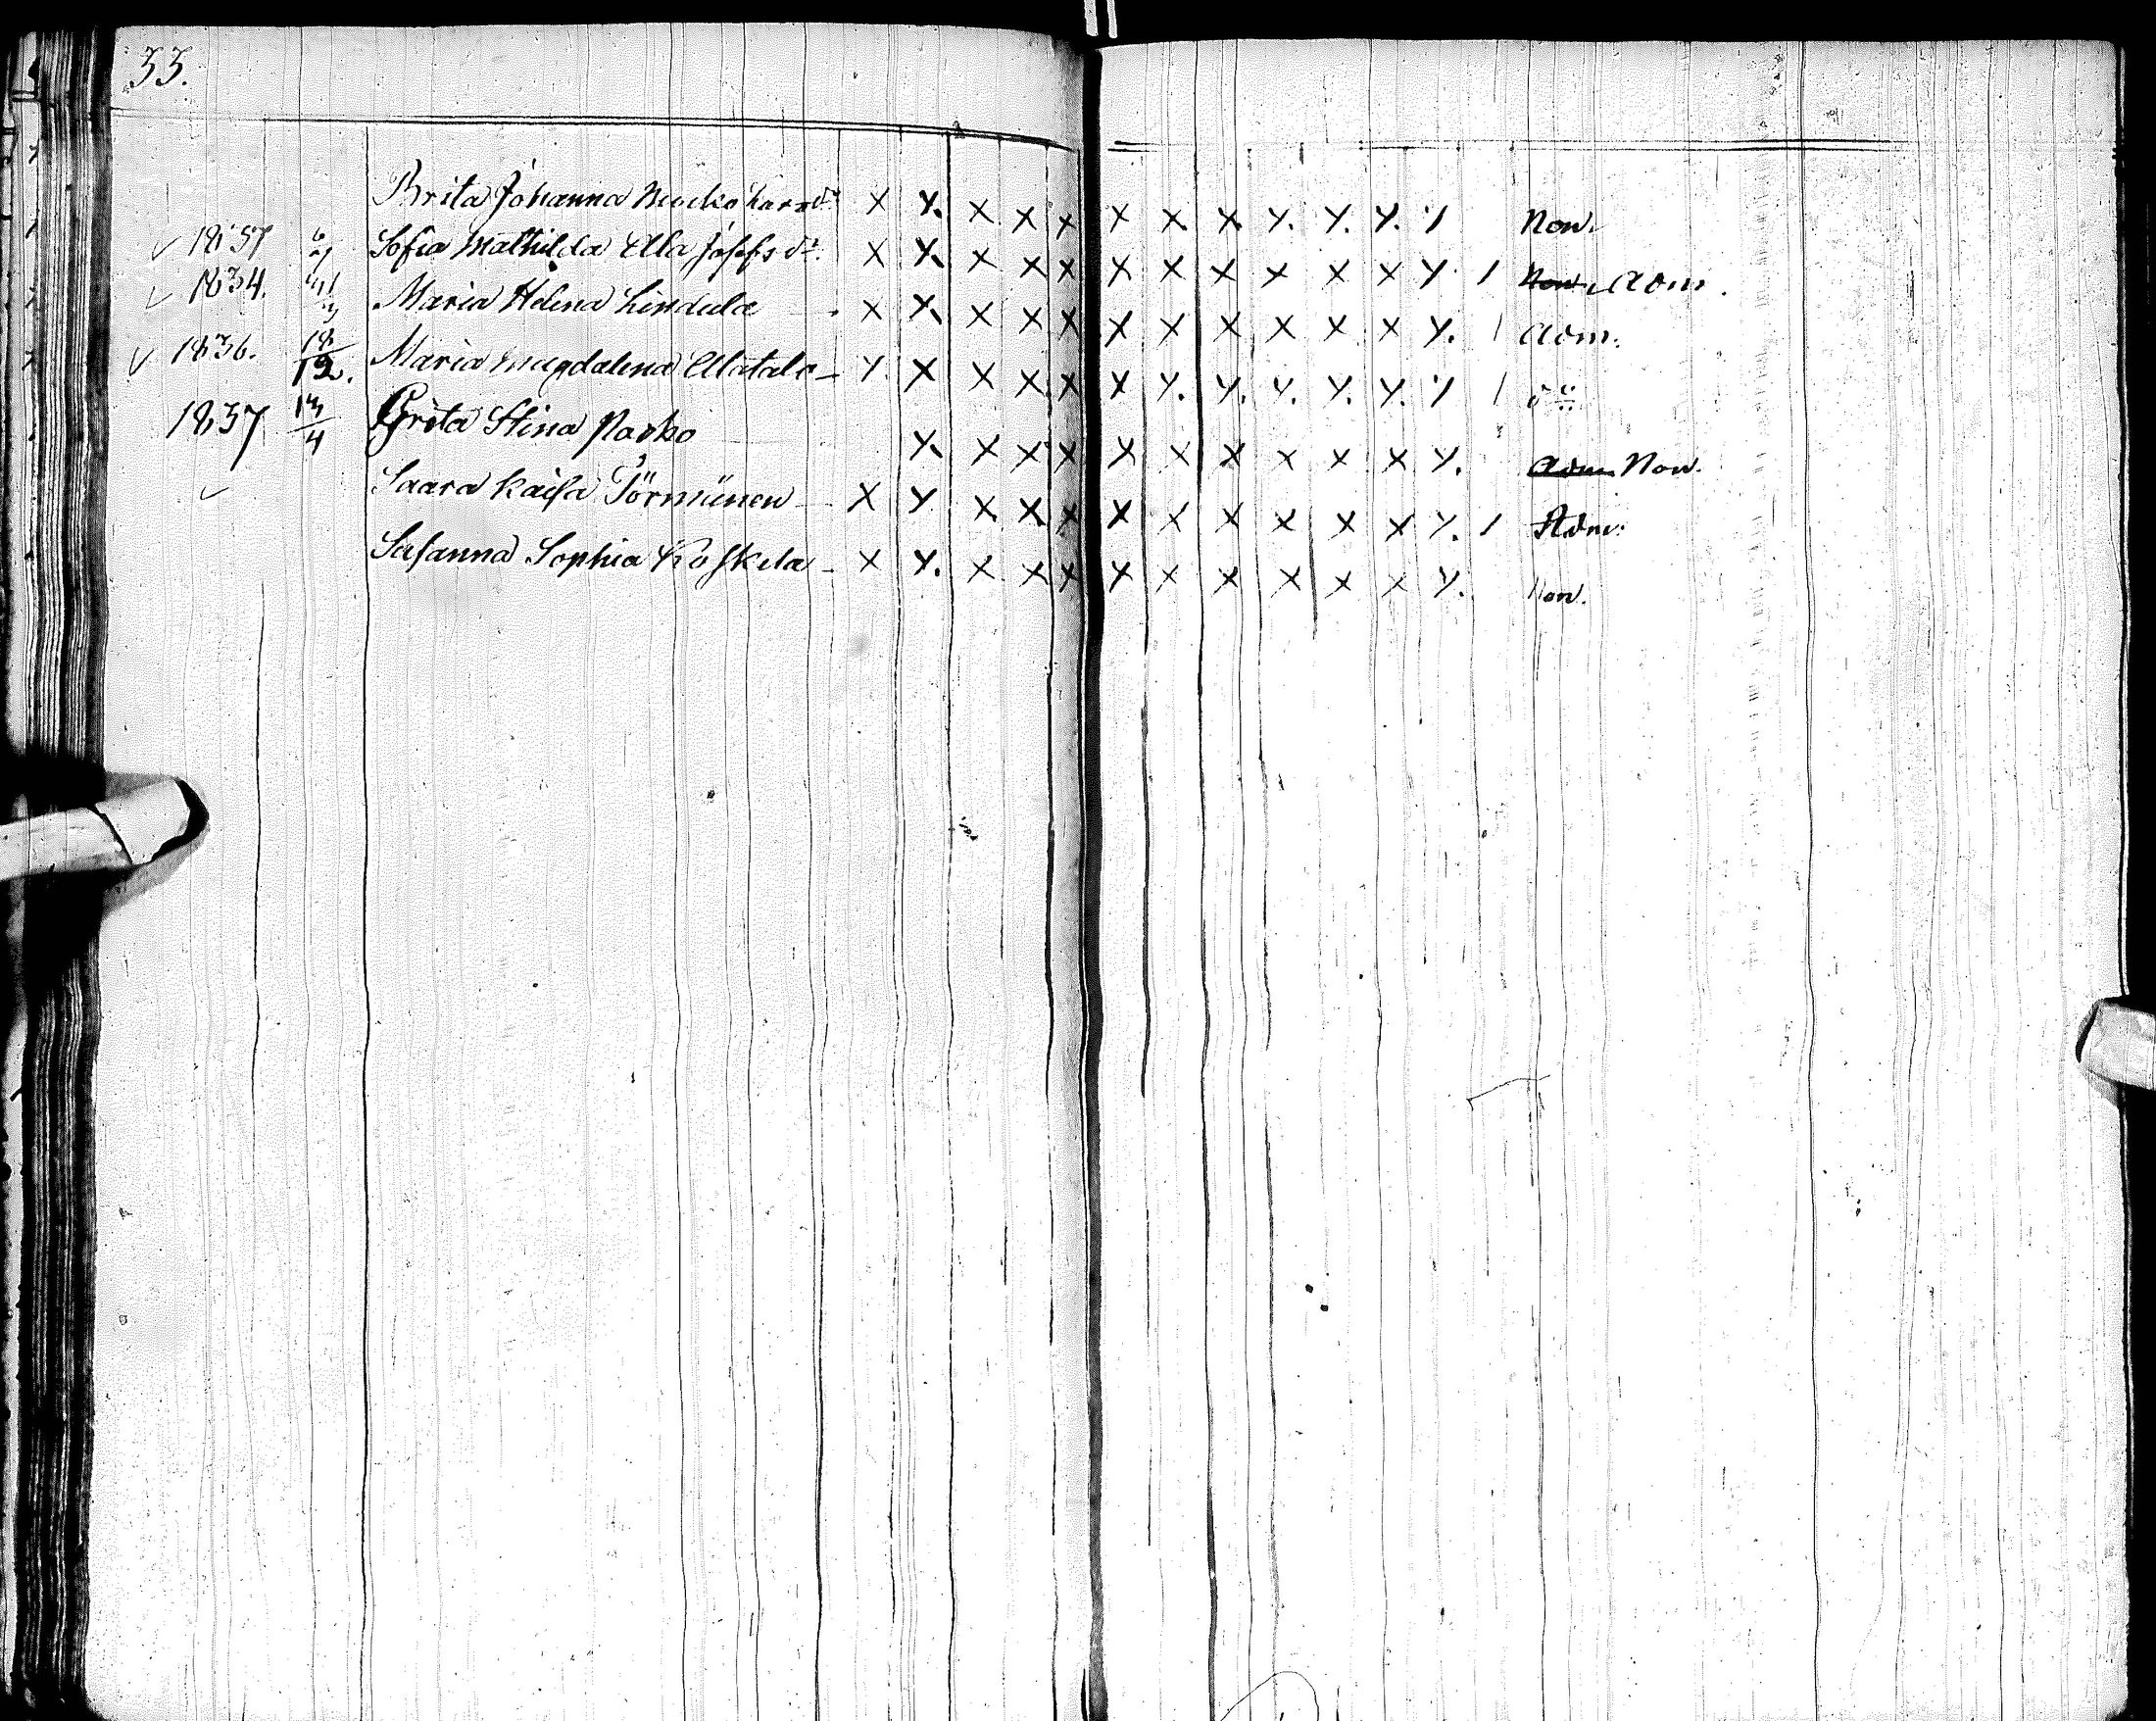 33.
Brita Johanna Larsdr X X. X X X X X. X. X. X. X. X Non.
1837 6 Sofia Mathilda Ala Josefsdr. X X. X X X X X X X X X X / Non. Adm.
1834. Maria Helena Lindula X X. X X X X X X X X X X. / Adm.
1836. 18/12. Maria Magdalena Alatalo X. X X X X X X. X. X. X. X. X / do
1837 13/4 Greta Stina Parko X. X X X X X X X X X X. Adm Non.
Saara Kaisa Törmänen X X X. X. X X X X X X X X. / Adm.
Susanna Sophia Koskela X X. X X X X X X X X X X. Non.